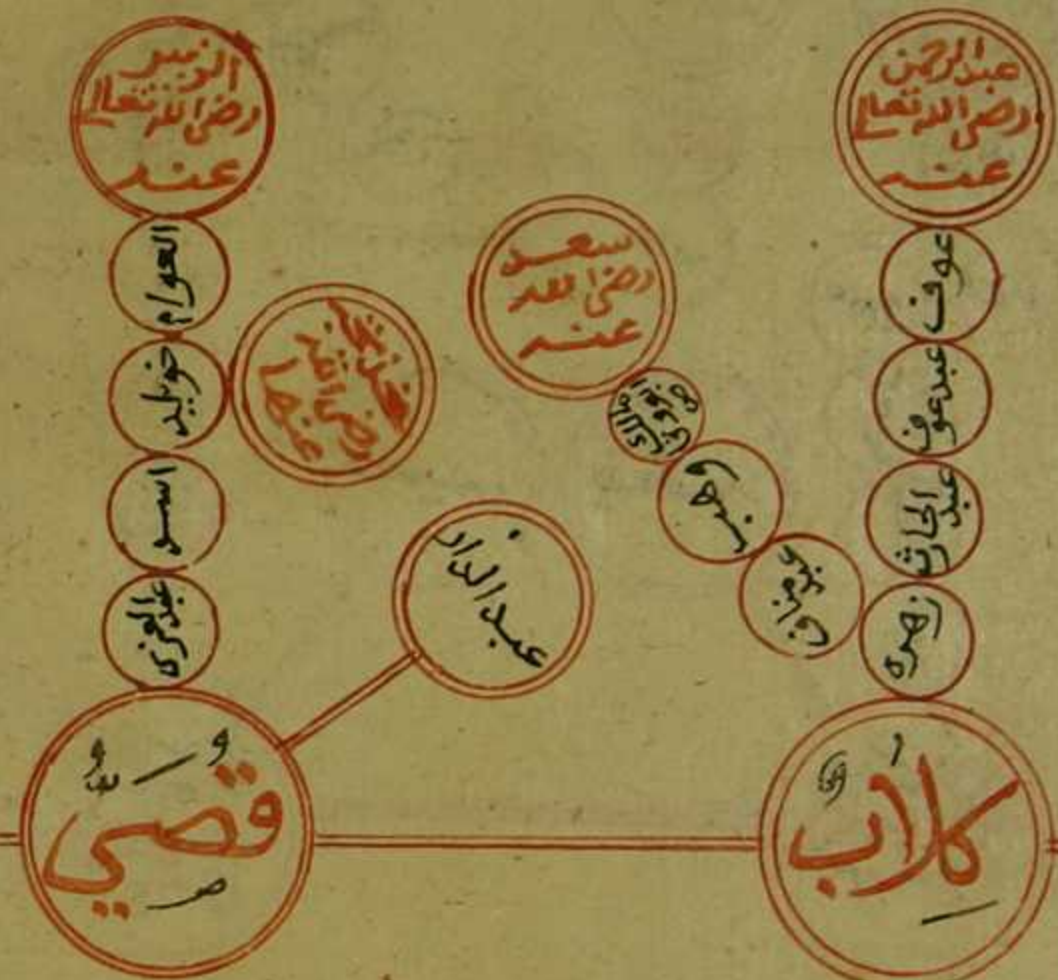 عبد الرحمن
رضى الله تعالى
عنه
عوف
عبد عوف
عبد الحارث
زهره
كلاب
سعد
رضى الله
عنه
مالك
وهب
عبد مناف
الزبير
رضى الله تعالى
عنه
العوام
خويلد
اسد
عبد العزى
خديجة
رضى الله
عنها
عبد الدار
قصي